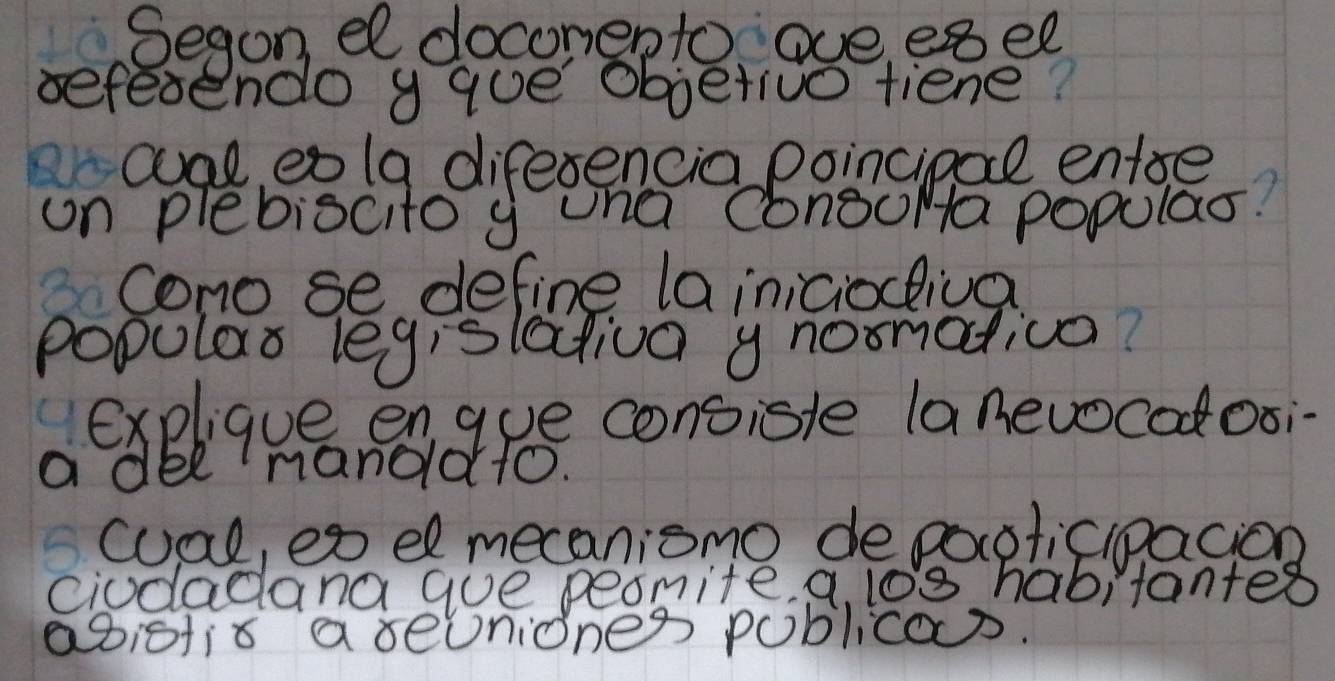 1. Segun, el documento ¿que es el
referendo y que objetivo tiene?
2. cual es la diferencia principal entre
un plebiscito y una consulta popular?
3. Como se define la iniciactiva
popular legislativa y normativa?
4. explique en que consiste la Revocatori-
a del mandato.
5. Cual, es el mecanismo de participacion
ciudadana que permite. a los habitantes
asistir a reuniones publicas.